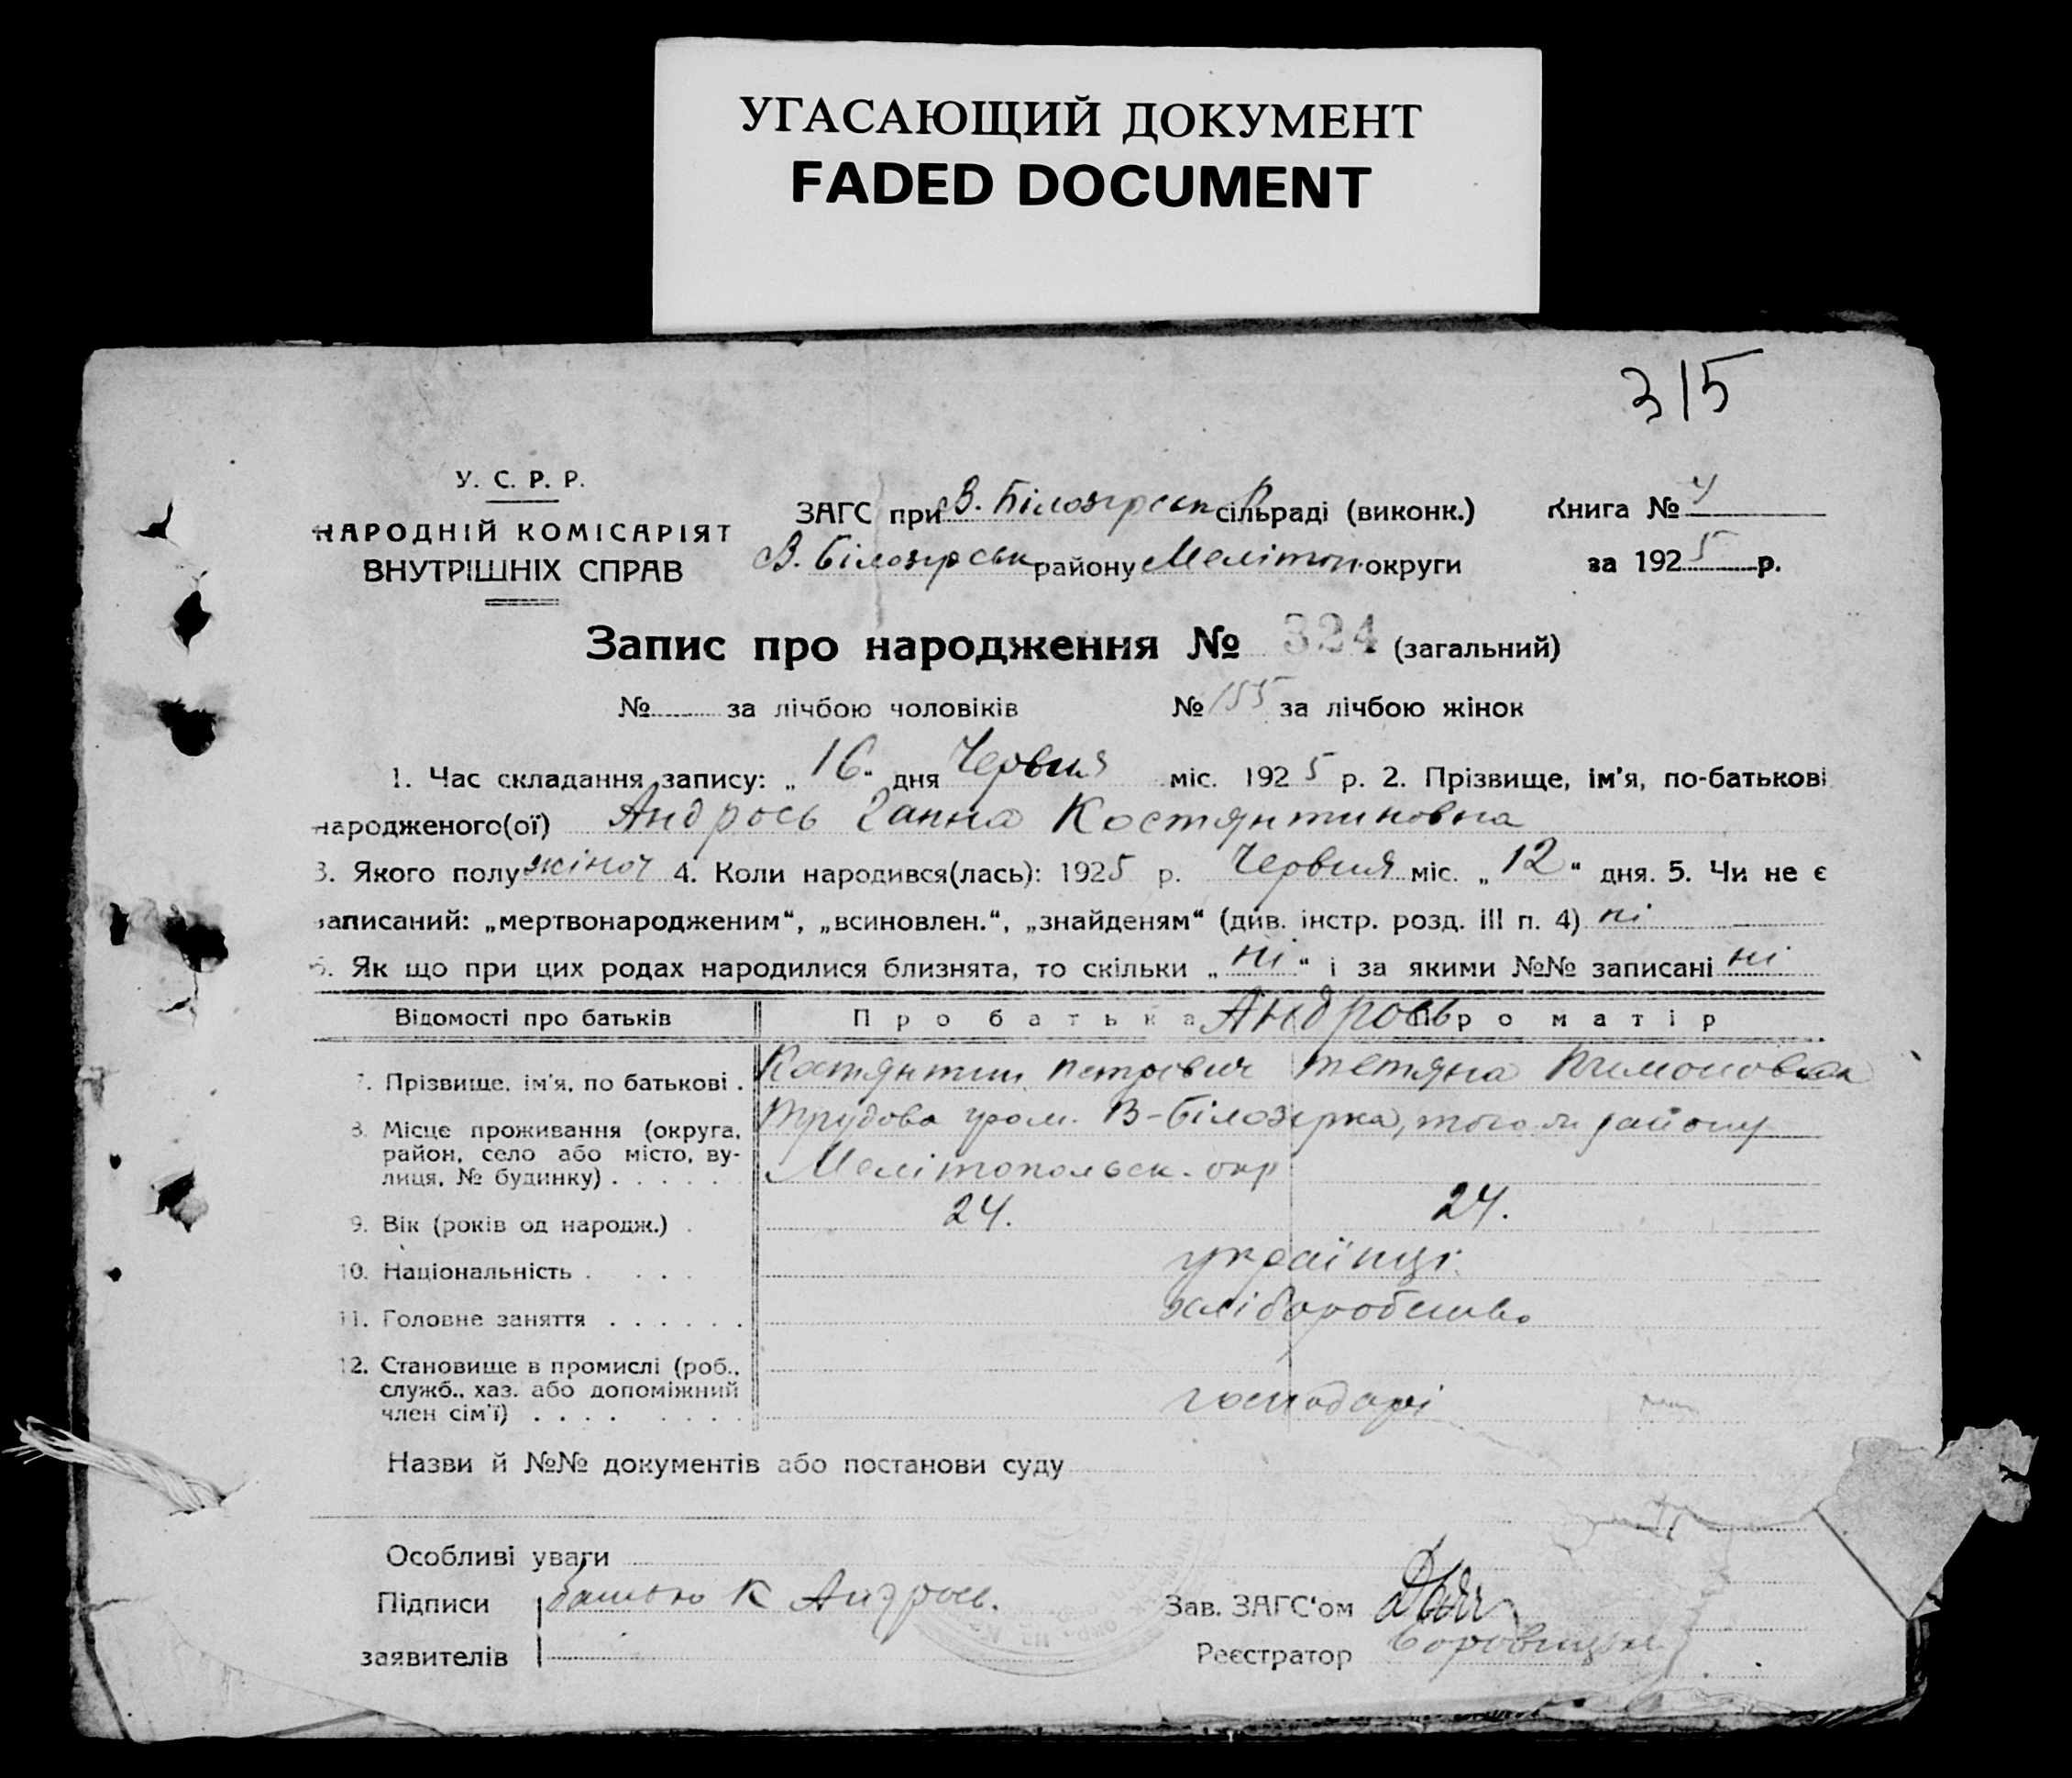 УГАСАЮЩИЙ ДОКУМЕНТ
FADED DOCUMENT
315
У. С. Р. Р.
НАРОДНІЙ КОМІСАРІЯТ
ВНУТРІШНІХ СПРАВ
ЗАГС при В. Білозірськ сільраді (виконк.)
В. Білозірськ району Мелітоп. округи
Книга №
за 1925 р.
Запис про народження № 324 (загальний)
№ за лічбою чоловіків № 155 за лічбою жінок
1. Час складання запису: „ 16 " дня Червня міс. 1925 р. 2. Прізвище, ім'я, по-батькові
народженого(ої) Андрось Ганна Костянтиновна
3. Якого полу жіноч 4. Коли народився(лась): 1925 р. Червня міс. „ 12 " дня. 5. Чи не є
записаний: „мертвонародженим", „всиновлен.", „знайденям" (див. інстр. розд. III п. 4) ні
6. Як що при цих родах народилися близнята, то скільки „ ні " і за якими №№ записані ні
Відомості про батьків Про батька Андрось Про матір
7. Прізвище, ім'я, по батькові . Костянтин Петрович Тетяна Пимоновна
8. Місце проживання (округа, Трудова гром. В-Білозірка, того ж району
район, село або місто, ву-
лиця, № будинку) . . . . . Мелітопольск. окр
9. Вік (років од народж.) . 24. 24.
10. Національність . . . . українці.
11. Головне заняття . . . . . . хліборобство
12. Становище в промислі (роб.,
служб., хаз. або допоміжний
член сім'ї) . . . . . . . . господарі
Назви й №№ документів або постанови суду
Особливі уваги
Підписи батько К Андрось.
заявителів
Зав. ЗАГС'ом
Реєстратор